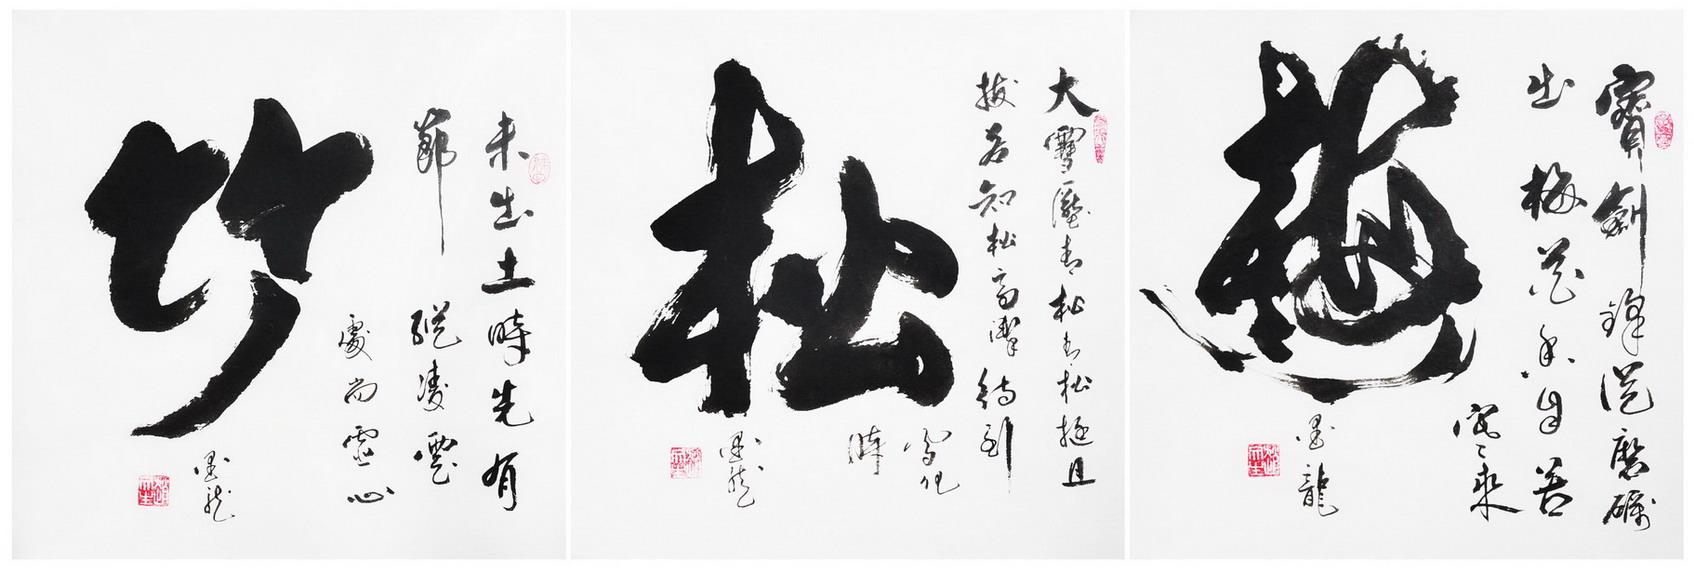 竹
未出土時先有
節
縱凌雲
處尚虛心
墨龍
松
大雪壓青松青松挺且
拔若知松高潔待到
雪化
時
墨龍
梅
寶劍鋒從磨礪
出梅花香自苦
寒之來
墨龍